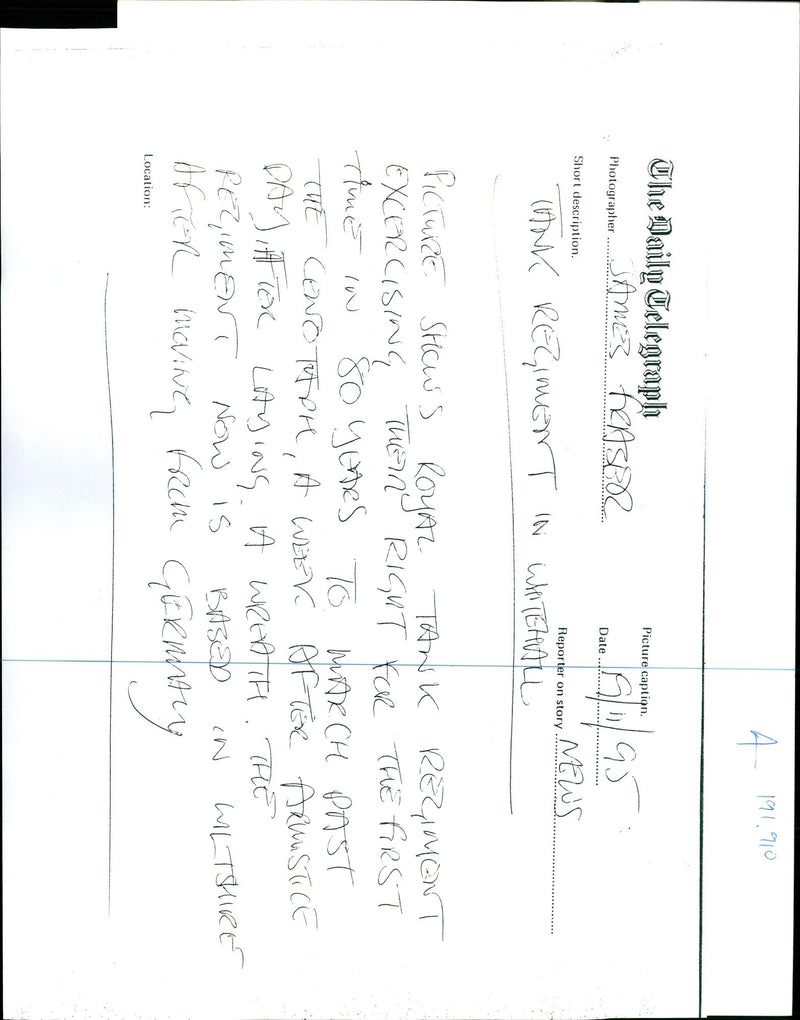 A 191.910
The Daily Telegraph
Picture caption.
Photographer JAMES FRASER
Date 19/11/95
Short description.
Reporter on story NEWS
TANK REGIMENT IN WHITEHALL
PICTURE SHOWS ROYAL TANK REGIMENT
EXCERCISING THEIR RIGHT FOR THE FIRST
TIME IN 80 YEARS TO MARCH PAST
THE CENOTAPH, A WEEK AFTER ARMISTICE
DAY, AFTER LAYING A WREATH. THE
REGIMENT NOW IS BASED IN WILTSHIRE
AFTER MOVING FROM GERMANY
Location: